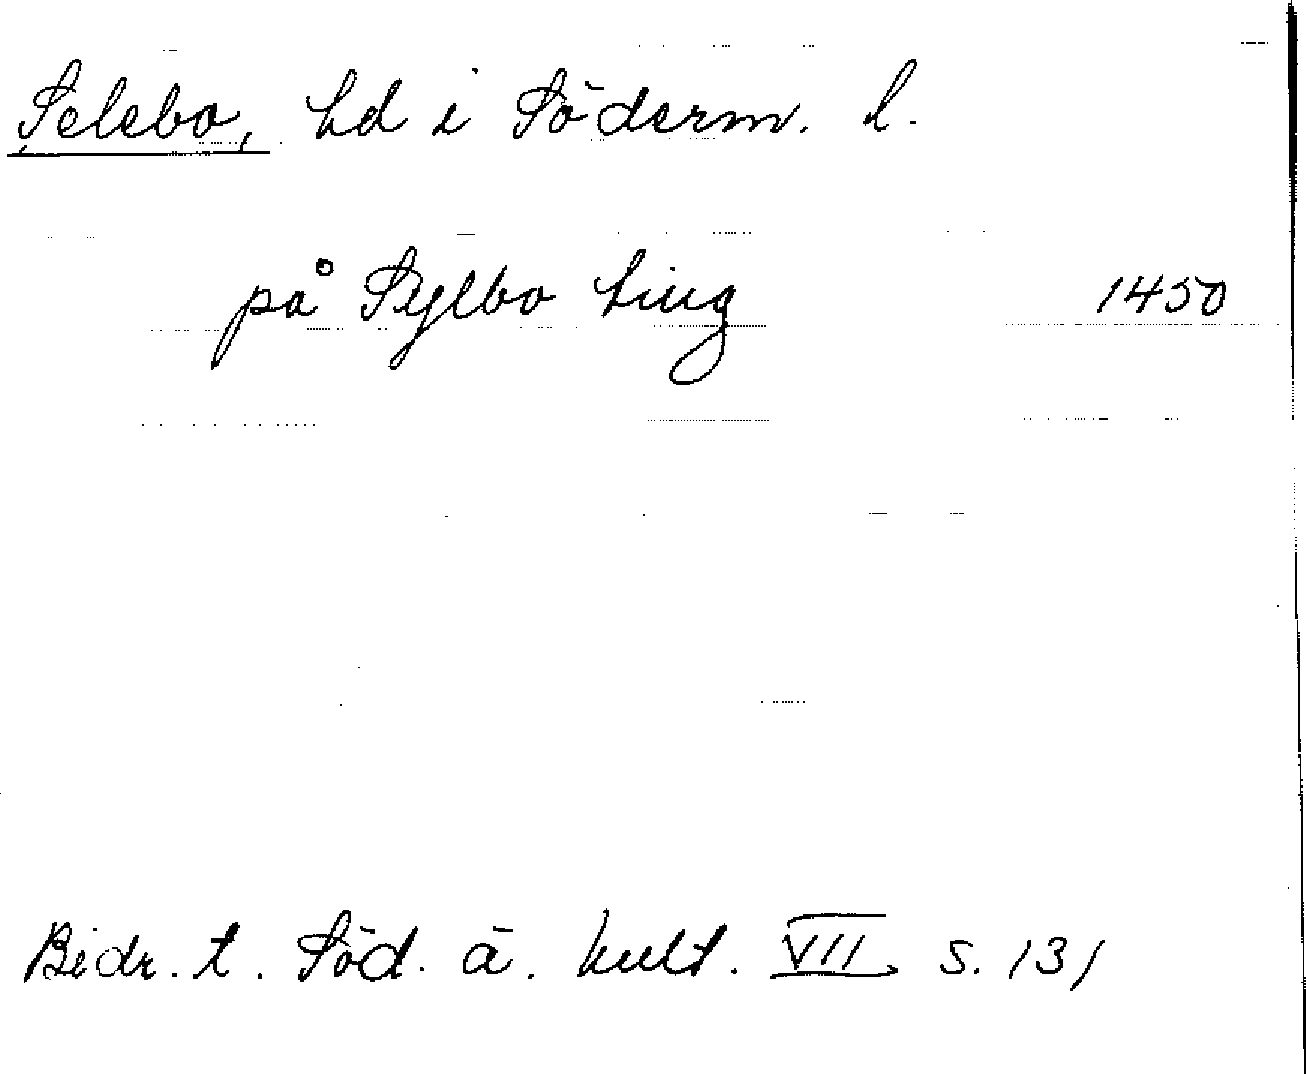 Selebo, hd i Söderm. l.
på Sylbo ting 1450
Bidr. t. Söd. ä. kult. VII s. 131